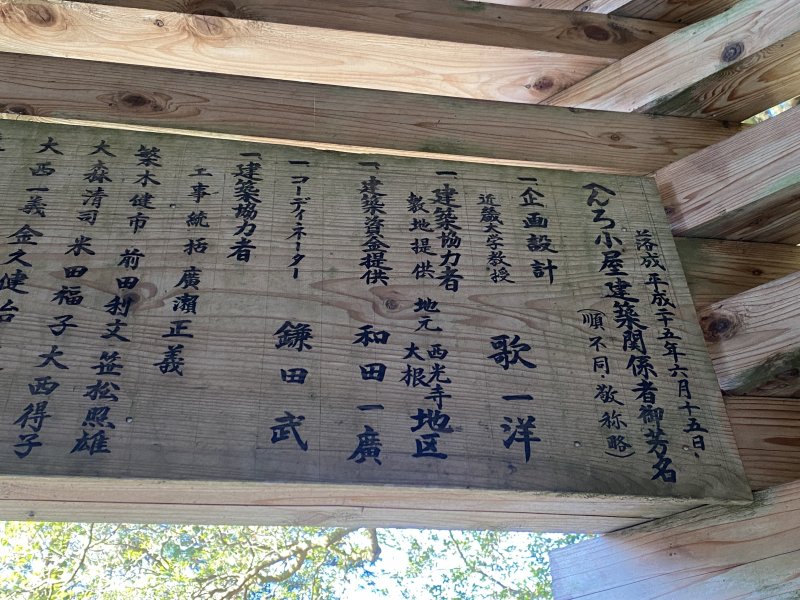 落成 平成二十五年六月十五日、
へんろ小屋建築関係者御芳名
(順不同・敬称略)
一企画設計
近畿大学教授 歌一洋
一建築協力者
敷地提供 地元 西光寺
大根地区
一建築資金提供 和田一廣
一コーディネーター 鎌田武
一建築協力者
工事統括 廣瀬正義
築木健市 前田利文 笠松照雄
大森清司 米田福子 大西得子
大西一義 金久健治